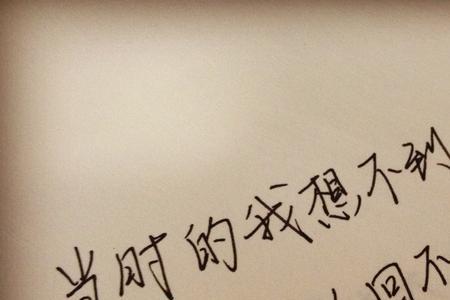 当时的我想不到
回不